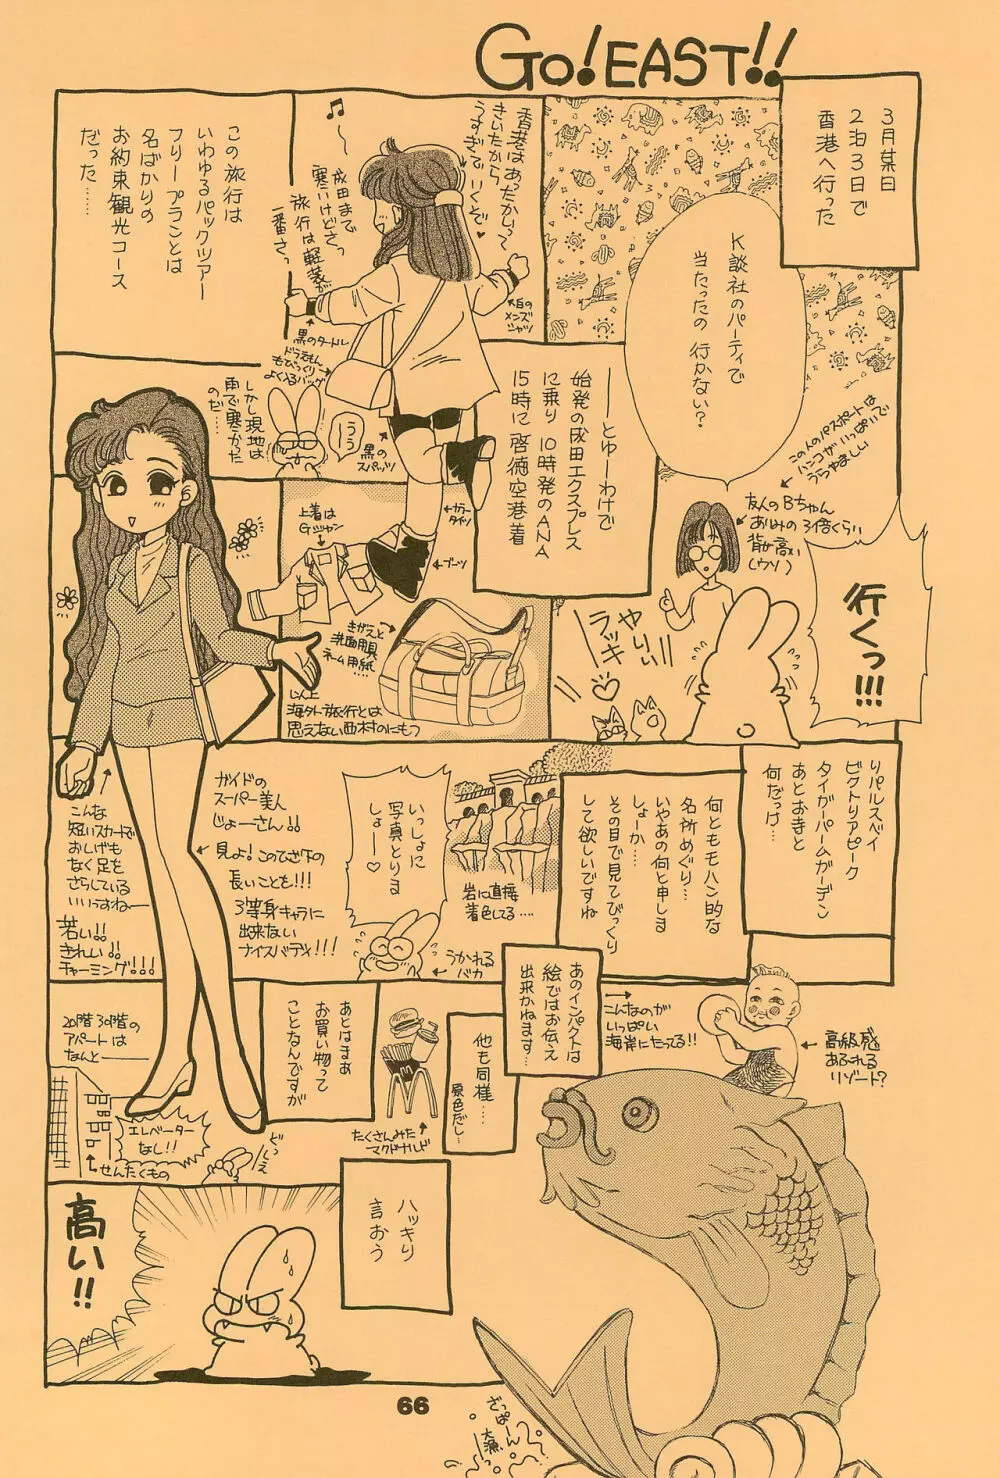 GO!EAST!!
3月某日
2泊3日で
香港へ行った
K談社のパーティで
当たったの 行かない?
この人のパスポートは
ハンコがいっぱいで
うらやましい
友人のBちゃん
あゆみの3倍くらい
背が高い
(ウソ)
行くっ!!!
やりぃ!!
ラッキー♡
――とゆーわけで
始発の成田エクスプレス
に乗り 10時発のANA
15時に啓徳空港着
香港はあったかいって
きいたから
うすぎで いくぞ♥
♫〜
成田まで
寒いけどさっ
旅行は軽装が
一番さっ
大白の
メンズ
シャツ
黒のタートル
ドラえもん
もびっくり
よく入るバッグ
黒の
スパッツ
カラー
タイツ
ブーツ
この旅行は
いわゆるパックツアー
フリープランとは
名ばかりの
お約束観光コース
だった……
しかし現地は
雨で寒かった
のだ……
ううう〜
上着は
Gジャン
きがえと
洗面用具
ネーム用紙
以上
海外旅行とは
思えない西村のにもつ
リパルスベイ
ビクトリアピーク
タイガーバームガーデン
あとおきと
何だっけ…
何ともモハン的な
名所めぐり…
いやあの何と申しま
しょーか…
その目で見てびっくり
して欲しいですね
岩に直接
着色してる….
いっしょに
写真とりま
しょー♡
うかれる
バカ
ガイドの
スーパー美人
じょーさん!!
見よ!このひざ下の
長いことも!!!
3等身キャラに
出来ない
ナイスバディ!!!
こんな
短いスカートで
おしげも
なく足を
さらしている
いいっすねー
若い!!
きれい!!
チャーミング!!!
あのインパクトは
絵ではお伝え
出来かねます…
こんなのが
いっぱい
海岸にたってる!!
高級感
あふれる
リゾート?
他も同様…
原色だし…
たくさんみた
マクドナルド
あとはまぁ
お買い物って
ことなんですが
20階 30階の
アパートは
なんと――
エレベーター
なし!!
せんたくもの
どっしぇー
ハッキリ
言おう
高い!!
ざっぱーん
大漁
66